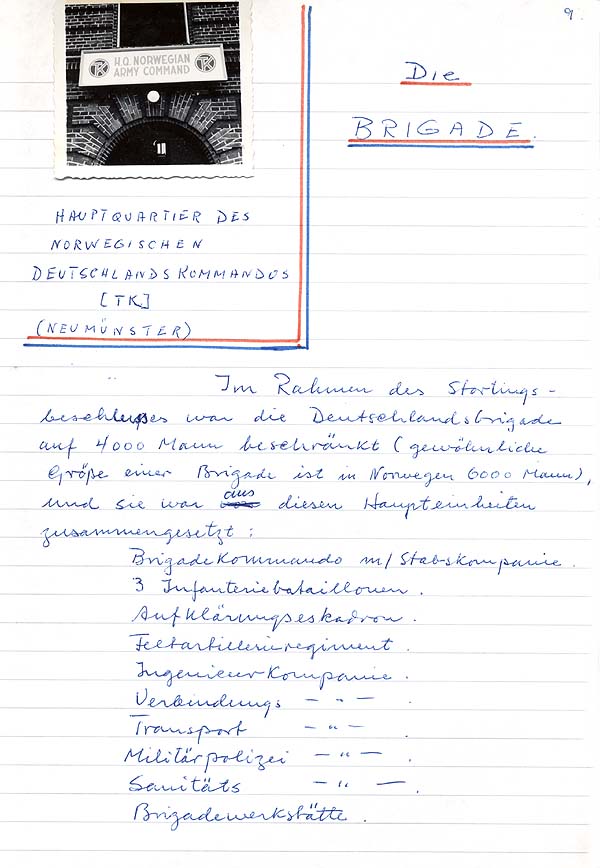 9.
H.Q. NORWEGIAN
ARMY COMMAND
TK
TK
Die
BRIGADE.
HAUPTQUARTIER DES
NORWEGISCHEN
DEUTSCHLANDSKOMMANDOS
[TK]
(NEUMÜNSTER)
Im Rahmen des Stortings-
beschlußes war die Deutschlandsbrigade
auf 4000 Mann beschränkt (gewöhnliche
Größe einer Brigade ist in Norwegen 6000 Mann),
und sie war aus diesen Haupteinheiten
zusammengesetzt:
Brigadekommando m/ Stabskompanie.
3 Infanteriebataillonen.
Aufklärungseskadron.
Feltartillerieregiment.
Ingenieurkompanie.
Verbindungs — " — .
Transport — " — .
Militärpolizei — " — .
Sanitäts — " — .
Brigadewerkstätte.